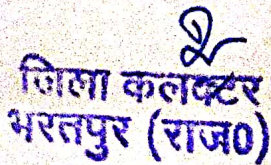 जिला कलक्टर
भरतपुर (राज0)